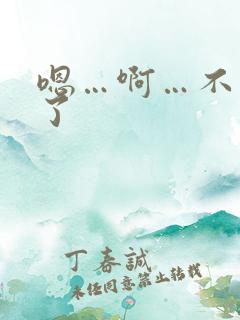 嗯…啊…不
了
丁春誠
未经同意禁止转载